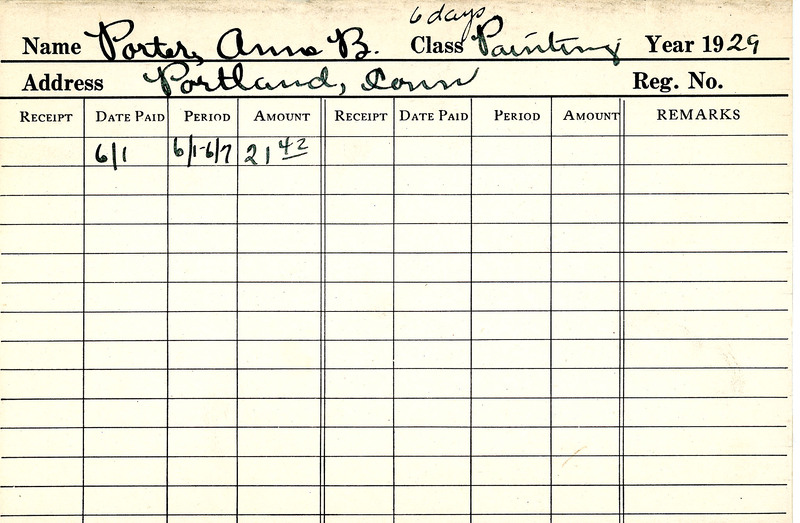 6 days
Name Porter, Anna B. Class Painting Year 1929
Address Portland, Conn Reg. No.
RECEIPT DATE PAID PERIOD AMOUNT RECEIPT DATE PAID PERIOD AMOUNT REMARKS
6/1 6/1-6/7 21 42